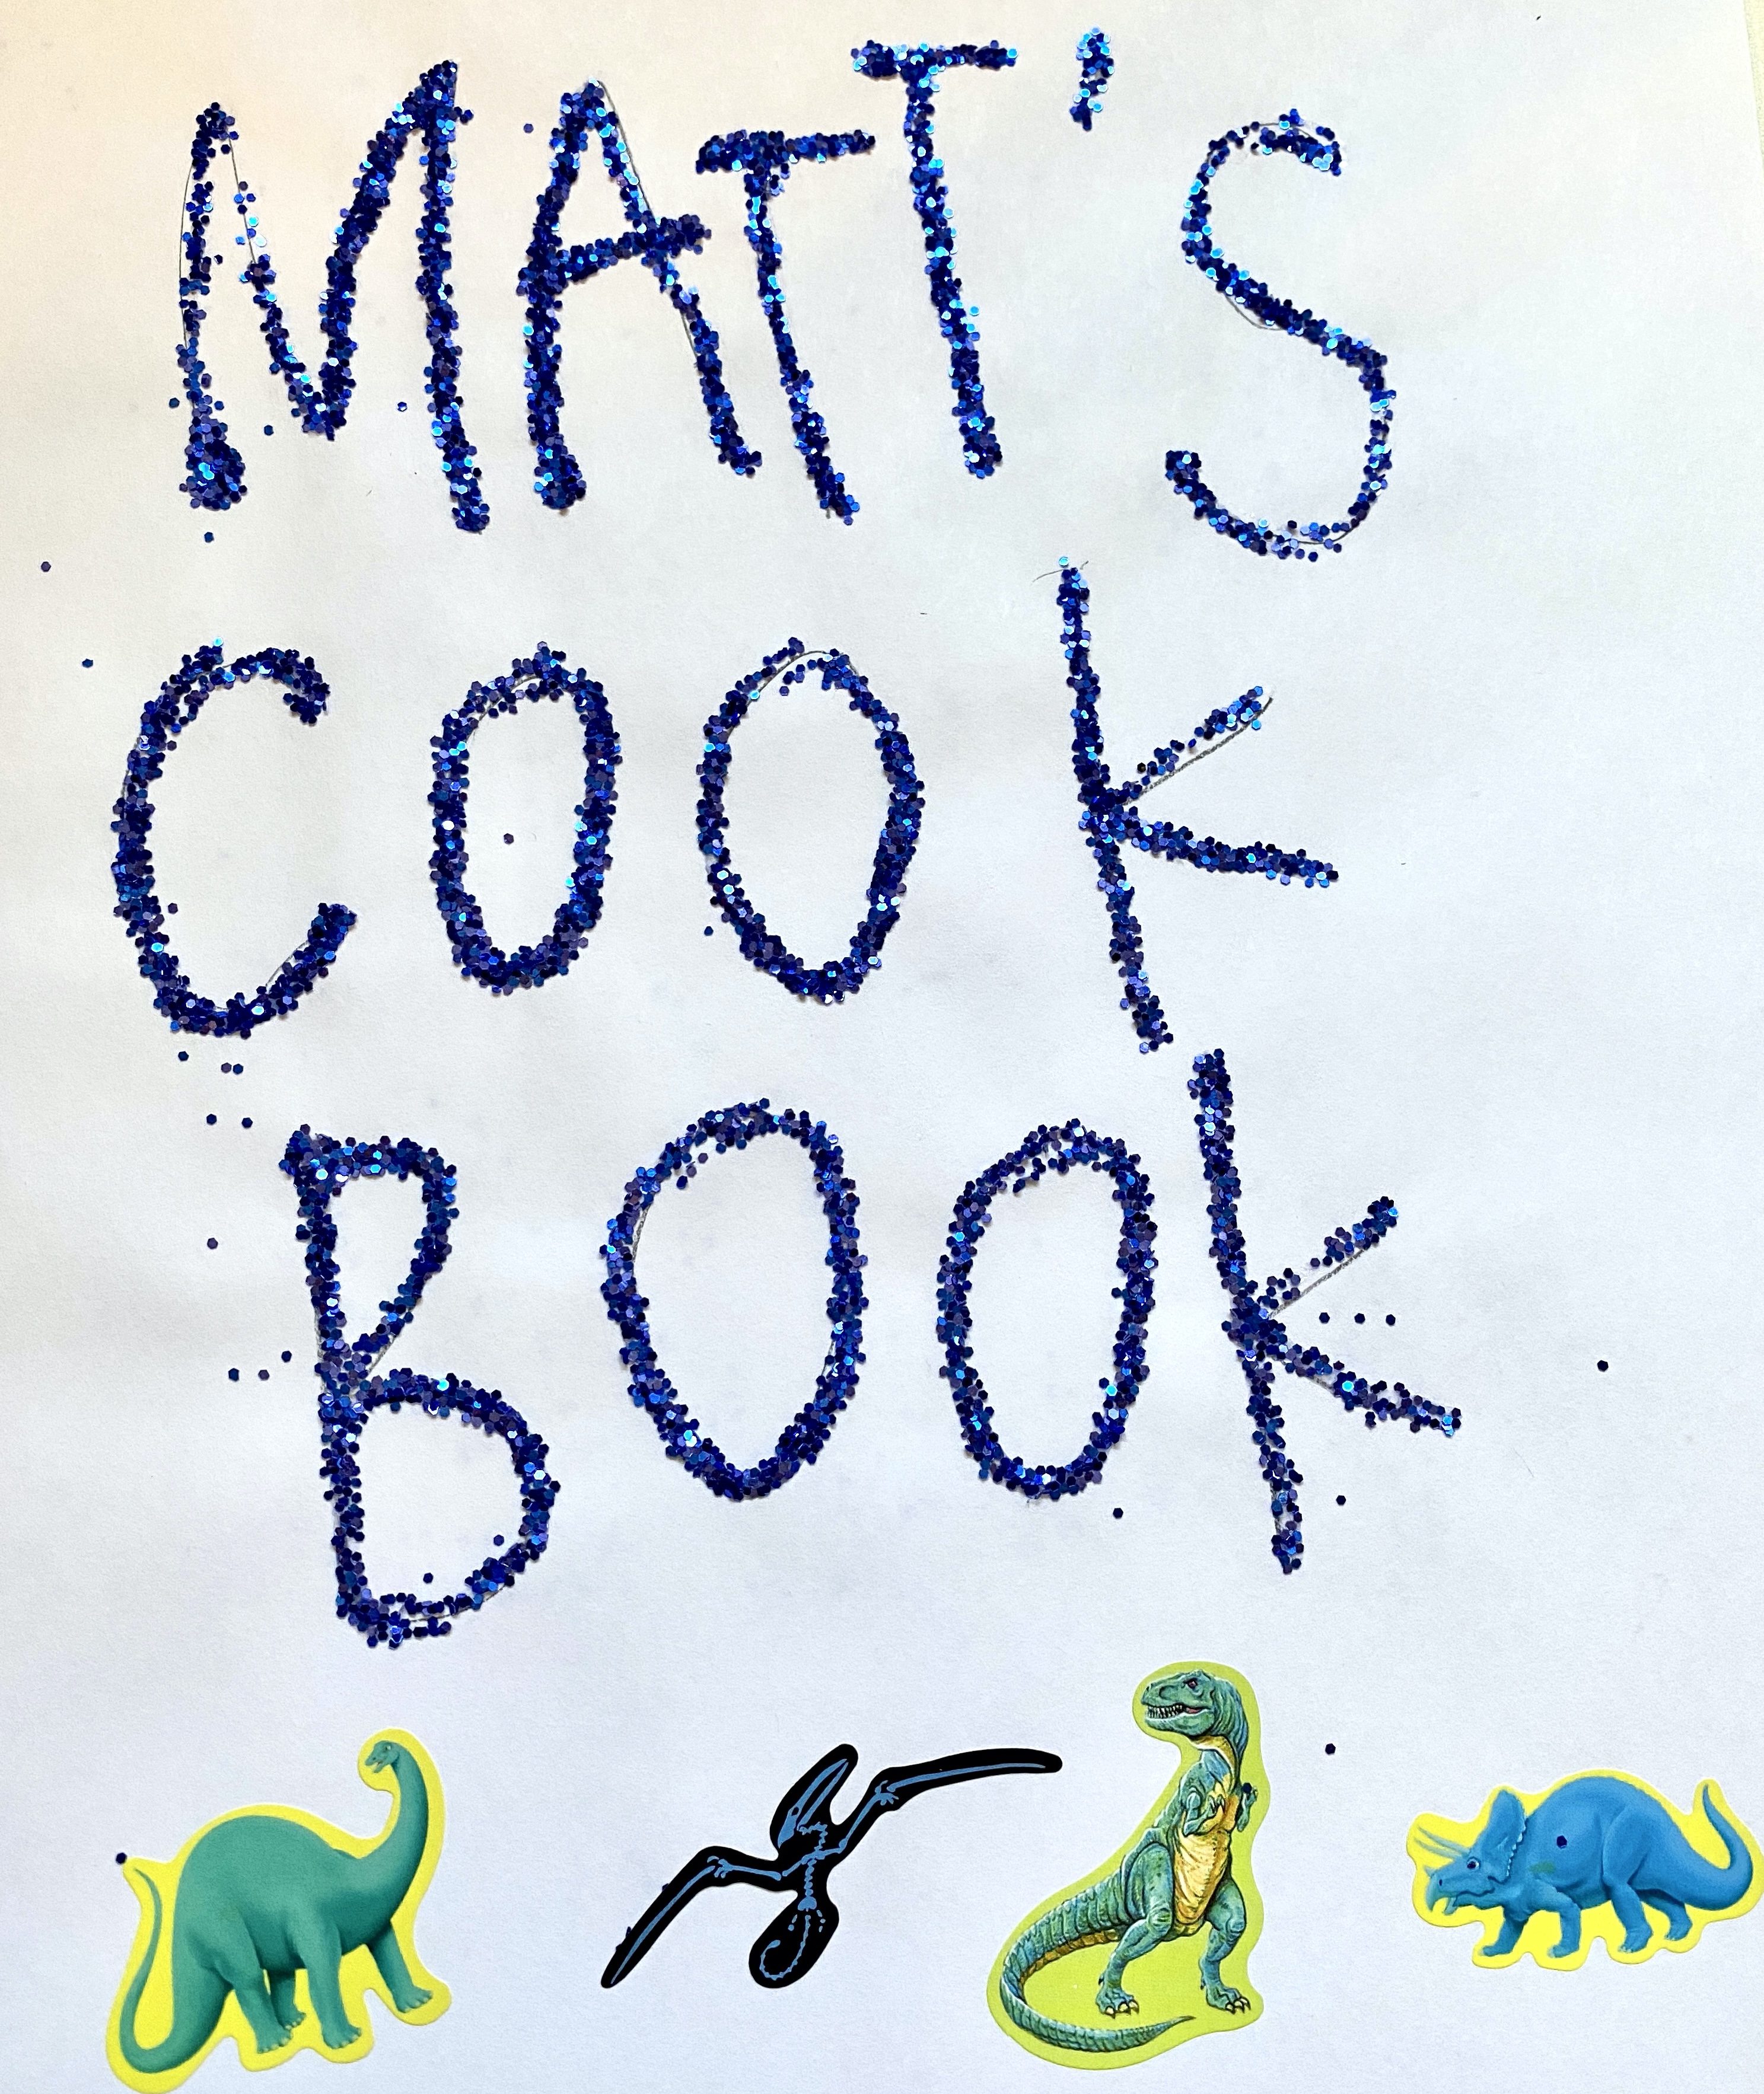 MATT's
COOK
BOOK